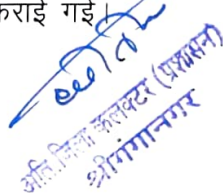 कराई गई।
अति. जिला कलक्टर (प्रशासन)
श्रीगंगानगर